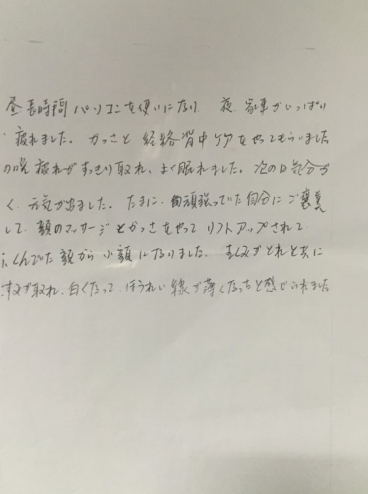 昼長時間パソコンを使いになり 夜、家事がいっぱい
疲れました。かっさと 経絡背中ケアをやってもらいました
の晩 疲れがすっきり取れ、よく眠れました。次の日気分が
く、元気が出ました。たまに、頑張っていた自分にご褒美
して、顔のマッサージとかっさをやって リフトアップされて
くんでた顔から小顔になりました。むくみがとれと共に
が取れ、白くなって、ほうれい線が薄くなったと感じられました